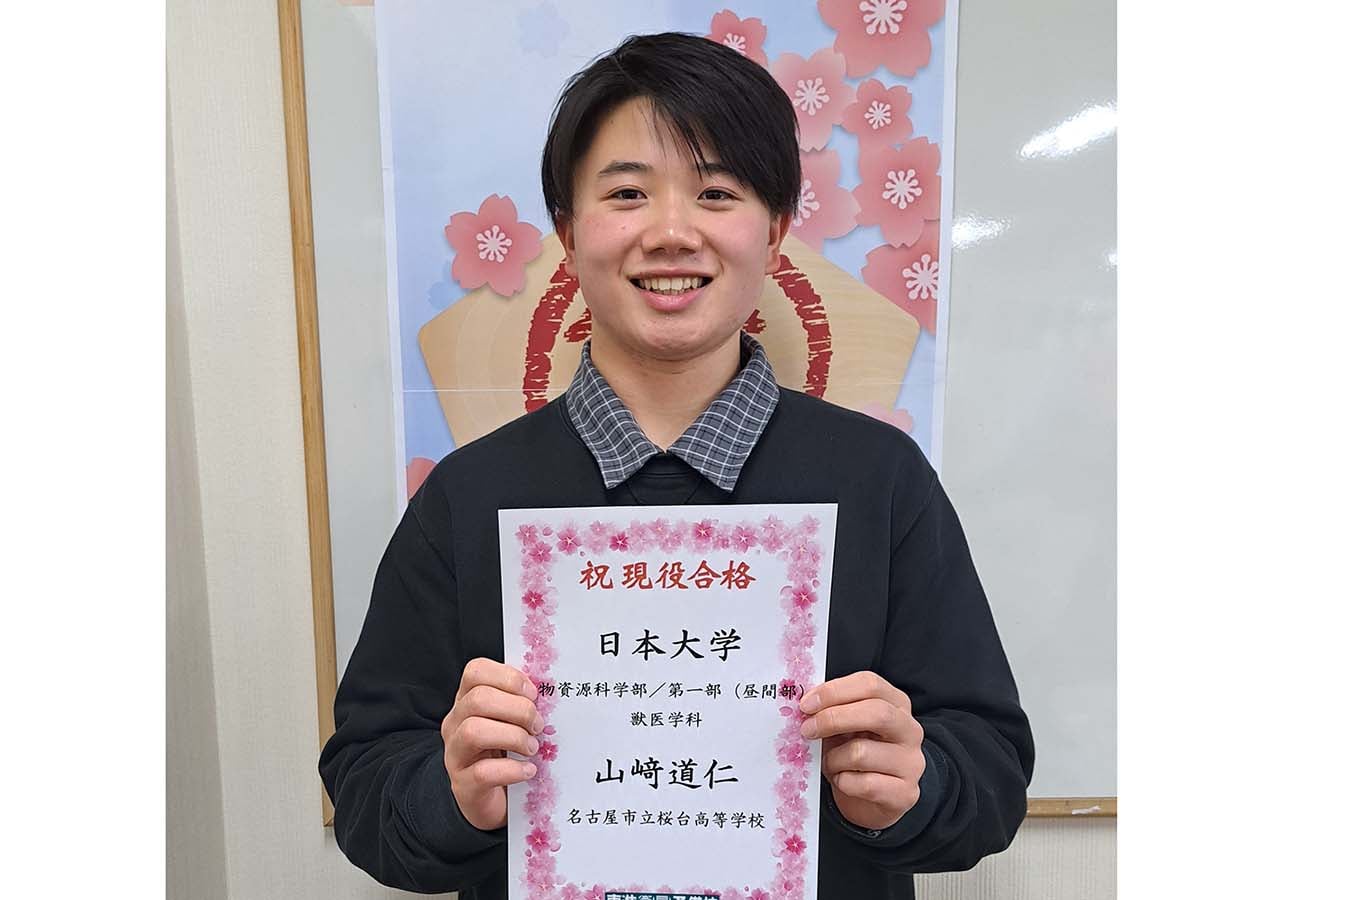 祝 現役合格
日本大学
物資源科学部／第一部（昼間部）
獣医学科
山﨑道仁
名古屋市立桜台高等学校